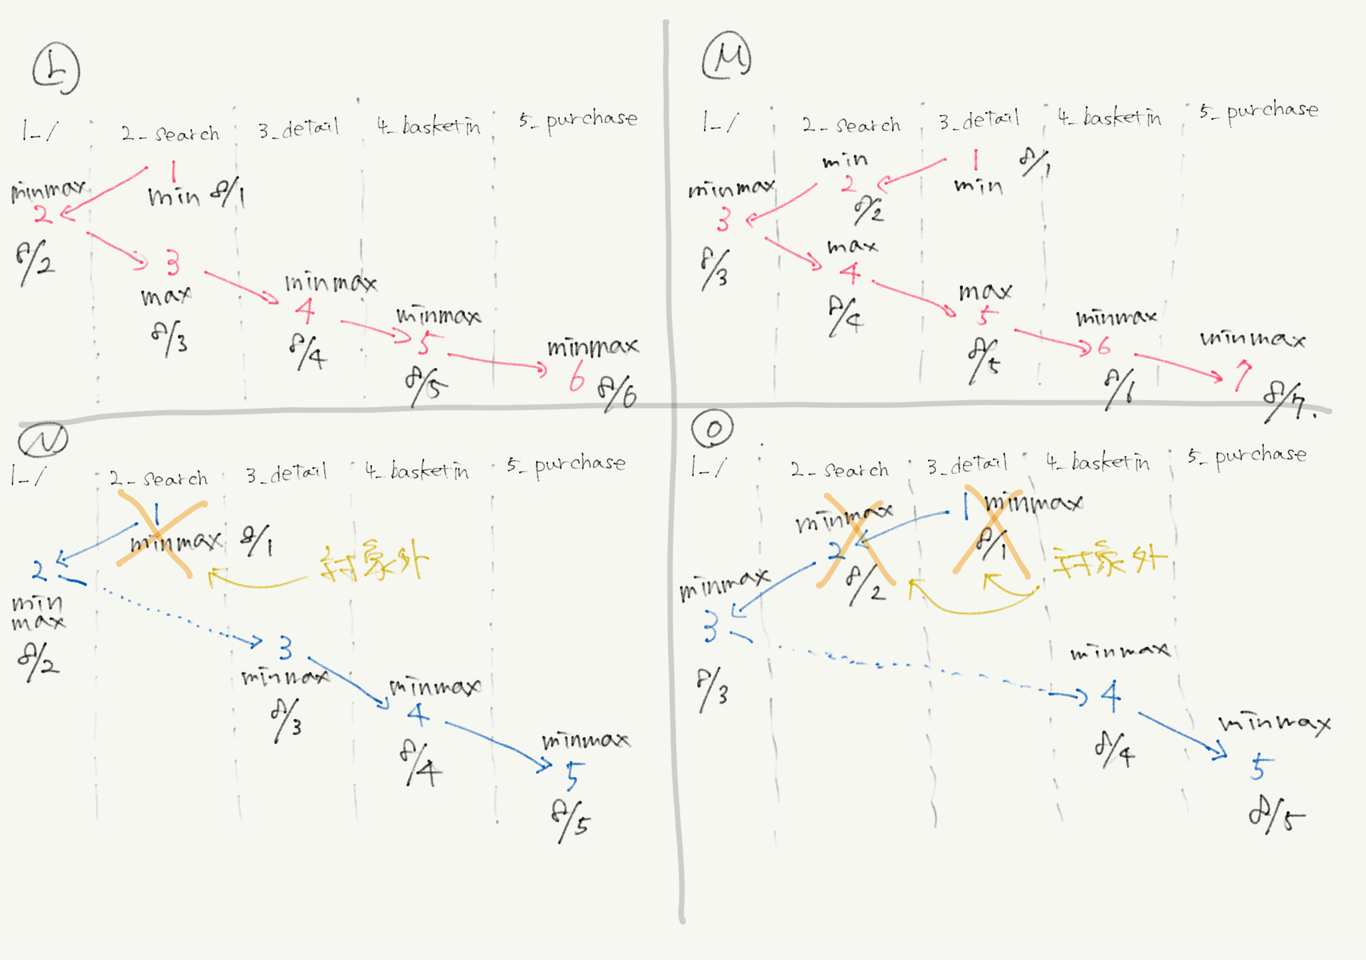 L
1_/ 2_search 3_detail 4_basketin 5_purchase
1
minmax min 8/1
2
8/2 3
max
8/3
minmax
4
8/4
minmax
5
8/5
minmax
6 8/6
M
1_/ 2_search 3_detail 4_basketin 5_purchase
1 8/1
min
min
2
8/2
minmax
3
8/3
max
4
8/4
max
5
8/5
minmax
6
8/6
minmax
7
8/7.
N
1_/ 2_search 3_detail 4_basketin 5_purchase
1
minmax 8/1
対象外
2
min
max
8/2
3
minmax
8/3
minmax
4
8/4
minmax
5
8/5
O
1_/ 2_search 3_detail 4_basketin 5_purchase
1 minmax
8/1
対象外
minmax
2
8/2
minmax
3
8/3
minmax
4
8/4
minmax
5
8/5